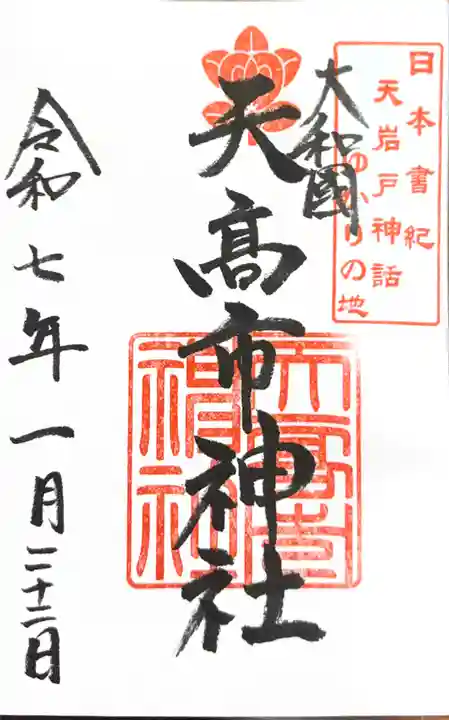 日本書紀
天岩戸神話
ゆかりの地
大和國
天高市神社
天高市
神社
令和七年一月二十二日